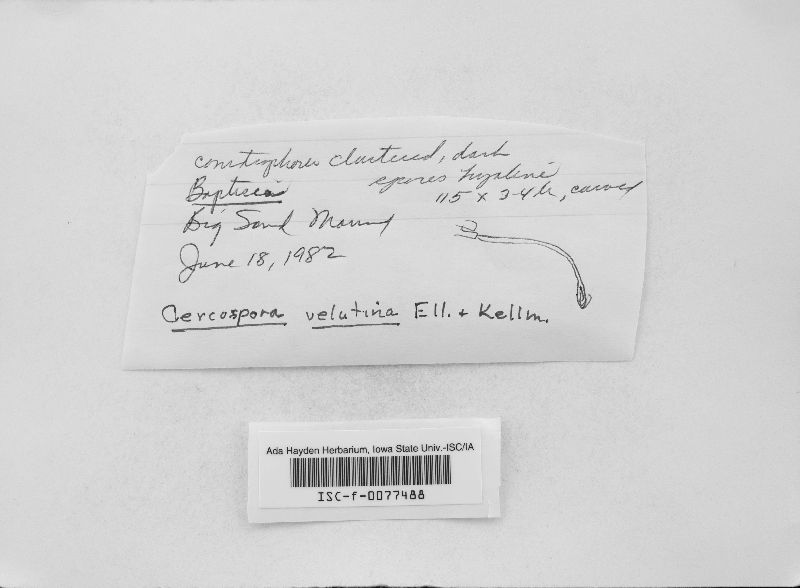 conidiophores clustered, dark
Baptisia
spores hyaline
115 x 3-4 u, curved
Big Sand Mound
June 18, 1982
Cercospora velutina Ell. + Kellm.
Ada Hayden Herbarium, Iowa State Univ.-ISC/IA
ISC-f-0077488